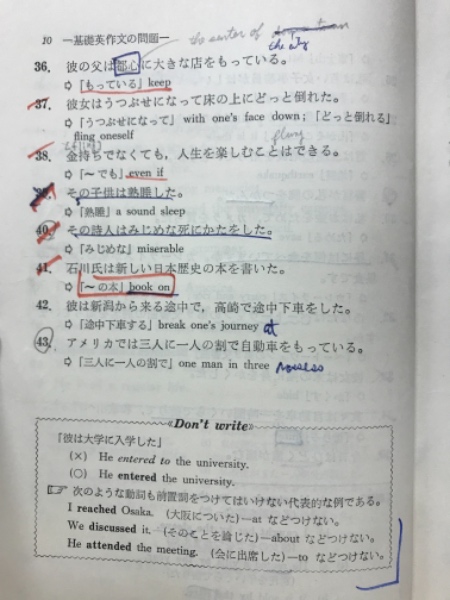 10 —基礎英作文の問題—
the center of
the city
36. 彼の父は都心に大きな店をもっている。
⇨「もっている」keep
37. 彼女はうつぶせになって床の上にどっと倒れた。
⇨「うつぶせになって」with one's face down;「どっと倒れる」
fling oneself
flung
38. 金持ちでなくても，人生を楽しむことはできる。
⇨「～でも」even if
39. その子供は熟睡した。
⇨「熟睡」a sound sleep
40. その詩人はみじめな死にかたをした。
⇨「みじめな」miserable
41. 石川氏は新しい日本歴史の本を書いた。
⇨「～の本」book on
42. 彼は新潟から来る途中で，高崎で途中下車をした。
⇨「途中下車する」break one's journey at
43. アメリカでは三人に一人の割で自動車をもっている。
⇨「三人に一人の割で」one man in three possess
《Don't write》
「彼は大学に入学した」
(×) He entered to the university.
(○) He entered the university.
☞ 次のような動詞も前置詞をつけてはいけない代表的な例である。
I reached Osaka. (大阪についた)—at などつけない。
We discussed it. (そのことを論じた)—about などつけない。
He attended the meeting. (会に出席した)—to などつけない。